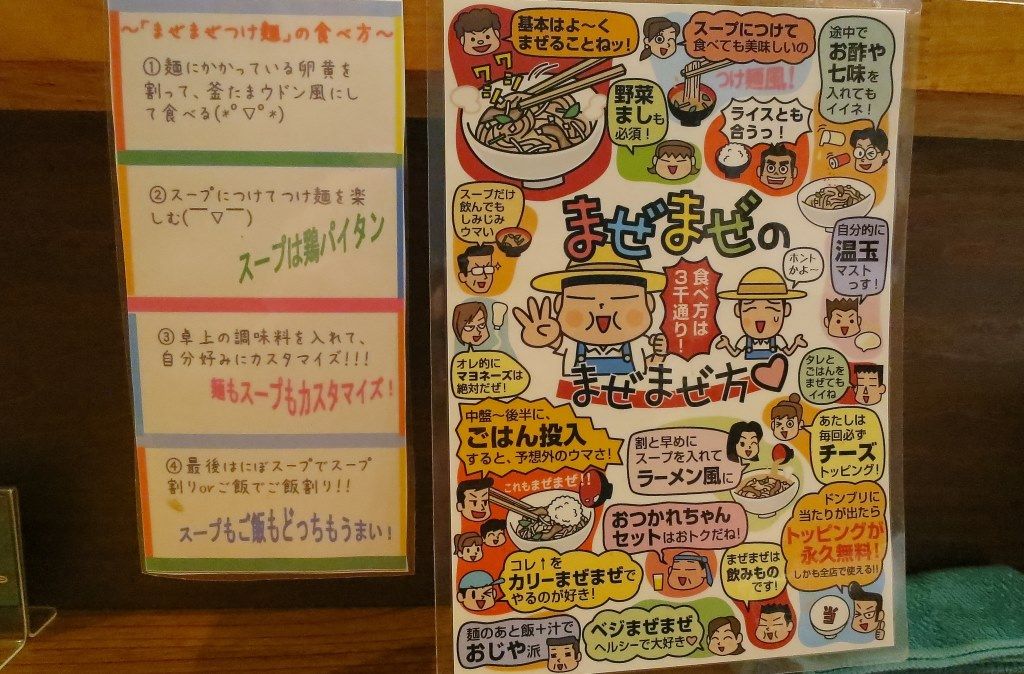 ～「まぜまぜつけ麺」の食べ方～
①麺にかかっている卵黄を
割って、釜たまウドン風にし
て食べる(*°▽°*)
②スープにつけてつけ麺を楽
しむ(￣▽￣)
スープは鶏パイタン
③卓上の調味料を入れて、
自分好みにカスタマイズ!!!
麺もスープもカスタマイズ！
④最後はにぼスープでスープ
割りorご飯でご飯割り!!
スープもご飯もどっちもうまい！
基本はよ～く
まぜることねッ！
ワシ
ワシ
スープにつけて
食べても美味しいの
つけ麺風！
途中で
お酢や
七味を
入れても
イイネ！
野菜
ましも
必須！
ライスとも
合うっ！
スープだけ
飲んでも
しみじみ
ウマい
まぜまぜの
食べ方は
3千通り！
ホント
かよ～
自分的に
温玉
マスト
っす！
オレ的に
マヨネーズは
絶対だぜ！
まぜまぜ方♡
タレと
ごはんを
まぜても
イイね
中盤～後半に、
ごはん投入
すると、予想外のウマさ！
これもまぜまぜ!!
割と早めに
スープを入れて
ラーメン風に
あたしは
毎回必ず
チーズ
トッピング！
おつかれちゃん
セットはおトクだね！
ドンブリに
当たりが出たら
トッピングが
永久無料！
しかも全店で使える!!
コレ↑を
カリーまぜまぜで
やるのが好き！
まぜまぜは
飲みもの
です！
当
麺のあと飯＋汁で
おじや派
ベジまぜまぜ
ヘルシーで大好き♡